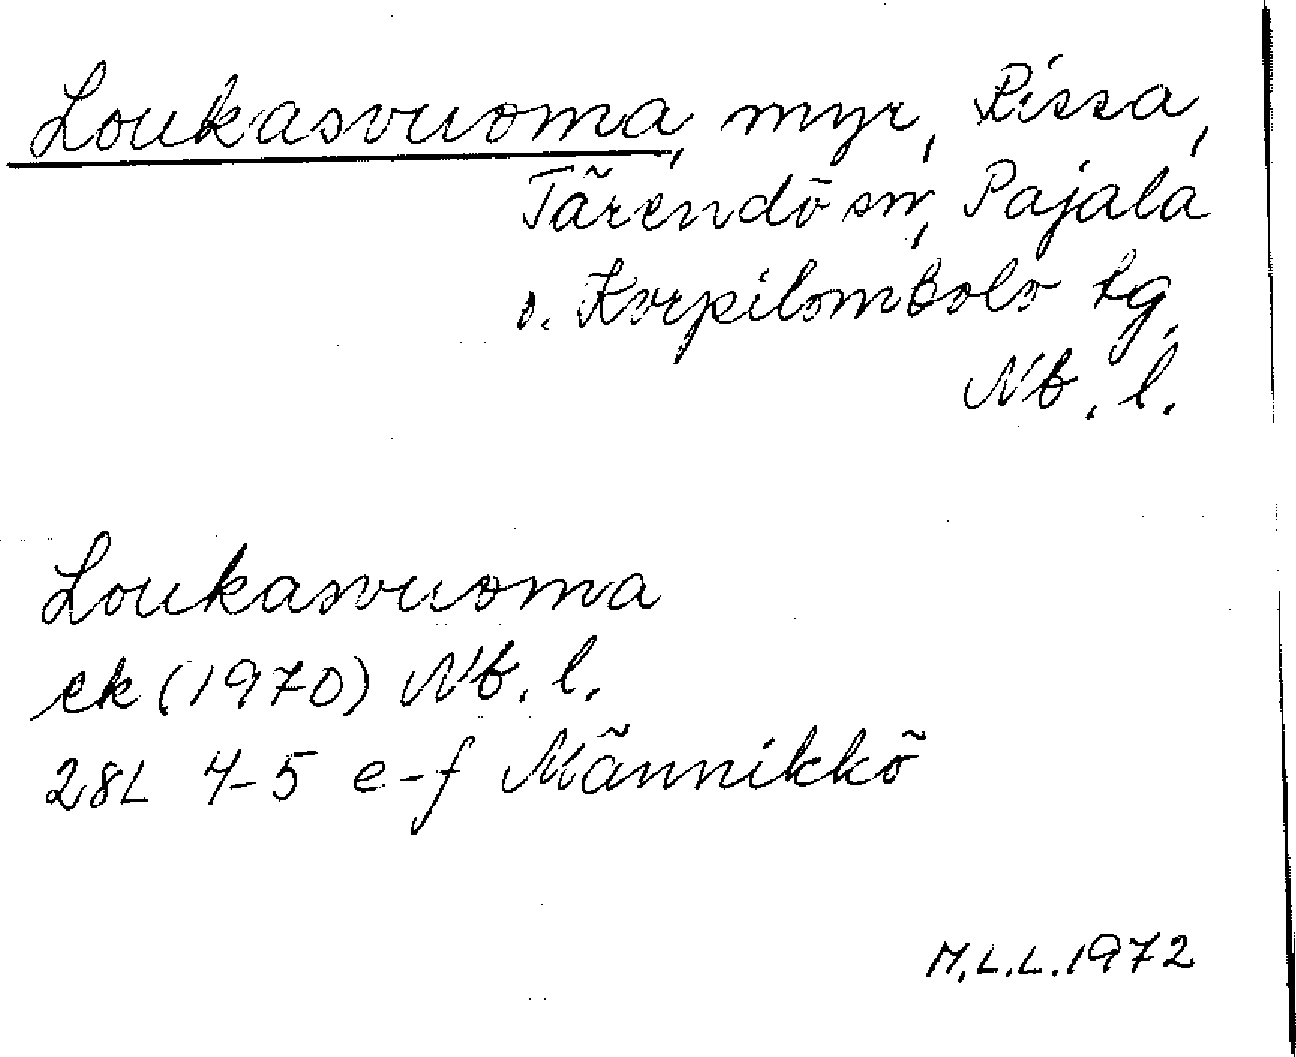 Loukasvuoma, myr, Rissa,
Tärendö sn, Pajala
o. Korpilombolo tg,
Nb. l.
Loukasvuoma
ek (1970) Nb. l.
28L 4-5 e-f Männikkö
M.L.L. 1972